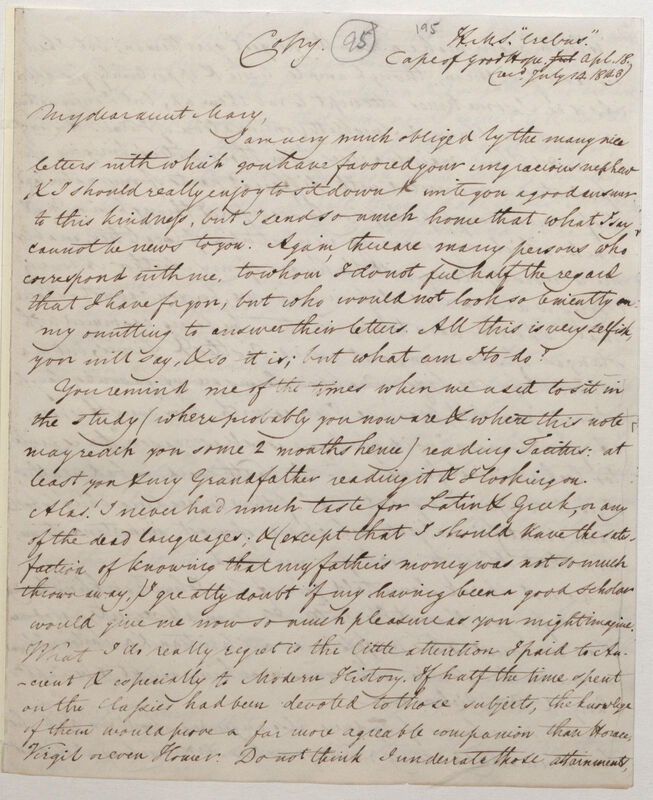 Copy. 95 195 H.M.S. "Erebus".
Cape of Good Hope, Apl. 18.
(recd July 12. 1843)
My dear aunt Mary,
I am very much obliged by the many nice
letters with which you have favored your ungracious nephew
& I should really enjoy to sit down & write you a good answer
to this kindness, but I send so much home that what I say
cannot be news to you. Again, there are many persons who
correspond with me, to whom I do not feel half the regard
that I have for you, but who would not look so leniently on
my omitting to answer their letters. All this is very selfish,
you will say, & so it is; but what am I to do?
You remind me of the times when we used to sit in
the study (where probably you now are & where this note
may reach you some 2 months hence) reading Tacitus: at
least you & my Grandfather reading it & I looking on.
Alas! I never had much taste for Latin & Greek, or any
of the dead languages; & (except that I should have the satis-
faction of knowing that my father's money was not so much
thrown away,) I greatly doubt of my having been a good scholar
would give me now so much pleasure as you might imagine.
What I do really regret is the little attention I paid to An-
-cient & especially to Modern History. If half the time spent
on the Classics had been devoted to those subjects, the knowledge
of them would prove a far more agreable companion than Horace,
Virgil or even Homer: Do not think I underrate those attainments,